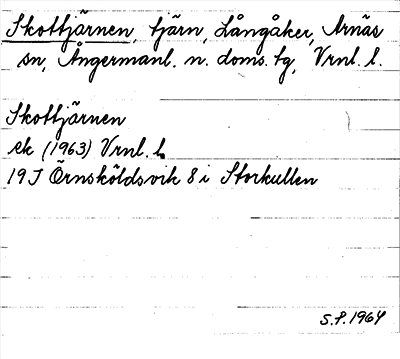 Skottjärnen, tjärn, Långåker, Arnäs
sn, Ångermanl. n. doms. tg, Vrnl. l.
Skottjärnen
ek (1963) Vrnl. l.
19 J Örnsköldsvik 8 i Storkullen
S.P. 1964